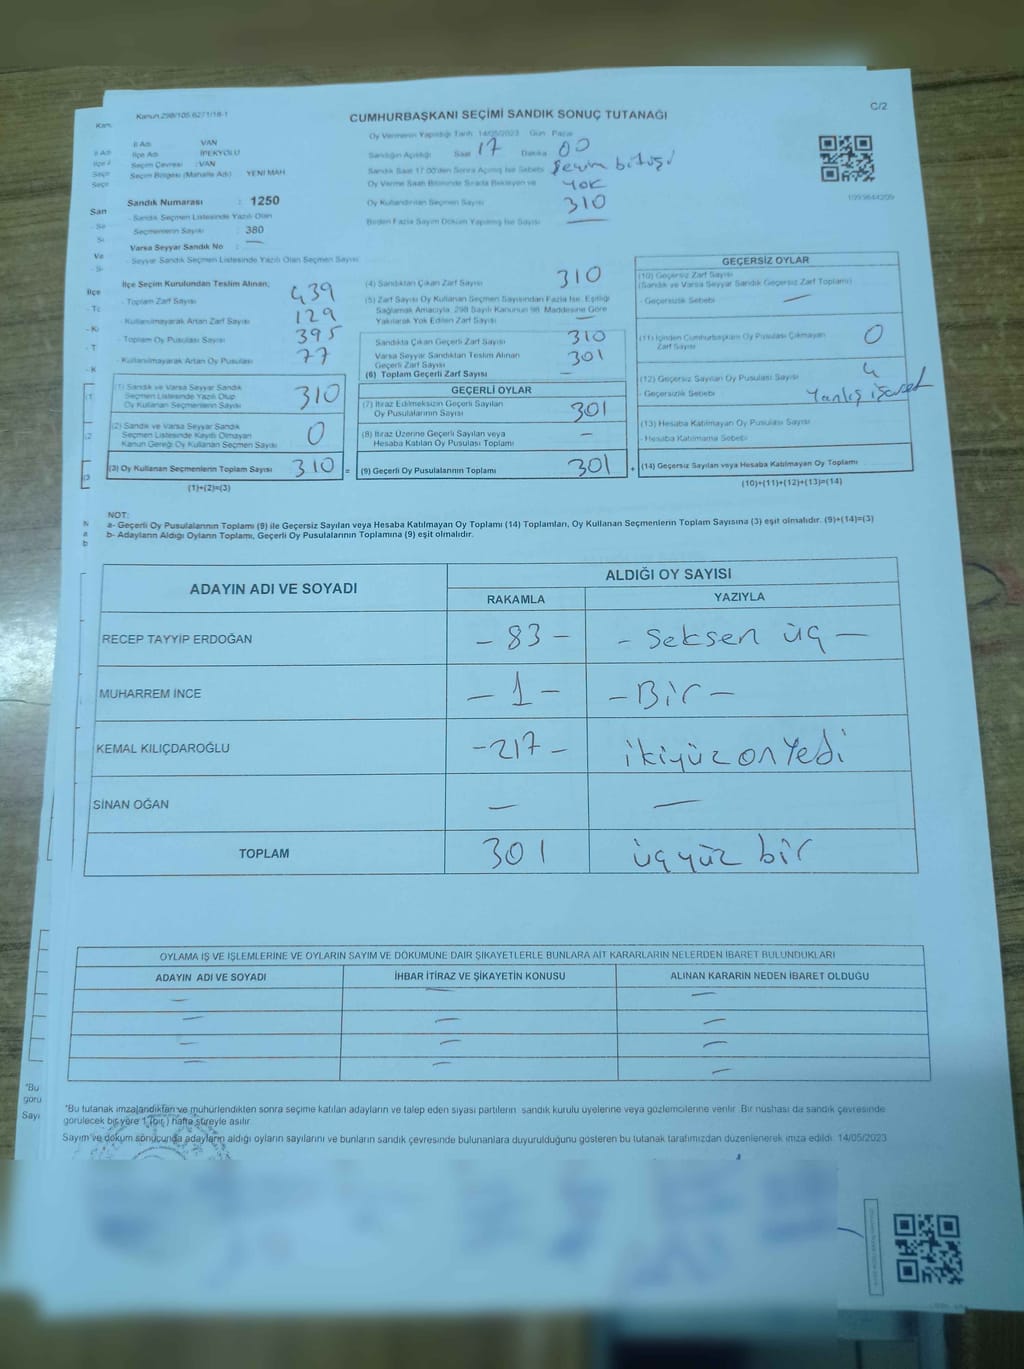 C/2
Kanun 298/105 6271/18-1
CUMHURBAŞKANI SEÇİMİ SANDIK SONUÇ TUTANAĞI
İl Adı VAN
İlçe Adı İPEKYOLU
Seçim Çevresi : VAN
Seçim Bölgesi (Mahalle Adı) YENİ MAH
Sandık Numarası : 1250
- Sandık Seçmen Listesinde Yazılı Olan
Seçmenlerin Sayısı : 380
Varsa Seyyar Sandık No —
- Seyyar Sandık Seçmen Listesinde Yazılı Olan Seçmen Sayısı
Oy Vermenin Yapıldığı Tarih 14/05/2023 Gün Pazar
Sandığın Açıldığı Saat 17 Dakika 00
Sandık Saat 17.00'den Sonra Açılmış İse Sebebi Seçim bitişi
Oy Verme Saati Bitiminde Sırada Bekleyen ve YOK
Oy Kullandırılan Seçmen Sayısı 310
Birden Fazla Sayım Döküm Yapılmış İse Sayısı —
İlçe Seçim Kurulundan Teslim Alınan;
- Toplam Zarf Sayısı 439
- Kullanılmayarak Artan Zarf Sayısı 129
- Toplam Oy Pusulası Sayısı 395
- Kullanılmayarak Artan Oy Pusulası 77
(1) Sandık ve Varsa Seyyar Sandık
Seçmen Listesinde Yazılı Olup
Oy Kullanan Seçmenlerin Sayısı 310
(2) Sandık ve Varsa Seyyar Sandık
Seçmen Listesinde Kayıtlı Olmayan
Kanun Gereği Oy Kullanan Seçmen Sayısı 0
(3) Oy Kullanan Seçmenlerin Toplam Sayısı 310 =
(1)+(2)=(3)
(4) Sandıktan Çıkan Zarf Sayısı 310
(5) Zarf Sayısı Oy Kullanan Seçmen Sayısından Fazla İse, Eşitliği
Sağlamak Amacıyla, 298 Sayılı Kanunun 98. Maddesine Göre
Yakılarak Yok Edilen Zarf Sayısı —
Sandıkta Çıkan Geçerli Zarf Sayısı 310
Varsa Seyyar Sandıktan Teslim Alınan
Geçerli Zarf Sayısı 301
(6) Toplam Geçerli Zarf Sayısı —
GEÇERLİ OYLAR
(7) İtiraz Edilmeksizin Geçerli Sayılan
Oy Pusulalarının Sayısı 301
(8) İtiraz Üzerine Geçerli Sayılan veya
Hesaba Katılan Oy Pusulası Toplamı —
(9) Geçerli Oy Pusulalarının Toplamı 301 +
GEÇERSİZ OYLAR
(10) Geçersiz Zarf Sayısı
(Sandık ve Varsa Seyyar Sandık Geçersiz Zarf Toplamı)
- Geçersizlik Sebebi —
(11) İçinden Cumhurbaşkanı Oy Pusulası Çıkmayan
Zarf Sayısı 0
(12) Geçersiz Sayılan Oy Pusulası Sayısı
- Geçersizlik Sebebi Yanlış işaret
(13) Hesaba Katılmayan Oy Pusulası Sayısı
- Hesaba Katılmama Sebebi
(14) Geçersiz Sayılan veya Hesaba Katılmayan Oy Toplamı
(10)+(11)+(12)+(13)=(14)
NOT:
a- Geçerli Oy Pusulalarının Toplamı (9) ile Geçersiz Sayılan veya Hesaba Katılmayan Oy Toplamı (14) Toplamları, Oy Kullanan Seçmenlerin Toplam Sayısına (3) eşit olmalıdır. (9)+(14)=(3)
b- Adayların Aldığı Oyların Toplamı, Geçerli Oy Pusulalarının Toplamına (9) eşit olmalıdır.
ADAYIN ADI VE SOYADI
ALDIĞI OY SAYISI
RAKAMLA YAZIYLA
RECEP TAYYİP ERDOĞAN - 83 - - seksen üç -
MUHARREM İNCE - 1 - - Bir -
KEMAL KILIÇDAROĞLU - 217 - ikiyüz onYedi
SİNAN OĞAN — —
TOPLAM 301 üçyüz bir
OYLAMA İŞ VE İŞLEMLERİNE VE OYLARIN SAYIM VE DÖKÜMÜNE DAİR ŞİKAYETLERLE BUNLARA AİT KARARLARIN NELERDEN İBARET BULUNDUKLARI
ADAYIN ADI VE SOYADI İHBAR İTİRAZ VE ŞİKAYETİN KONUSU ALINAN KARARIN NEDEN İBARET OLDUĞU
"Bu tutanak imzalandıktan ve mühürlendikten sonra seçime katılan adayların ve talep eden siyasi partilerin sandık kurulu üyelerine veya gözlemcilerine verilir. Bir nüshası da sandık çevresinde
görülecek bir yere 1 (bir) hafta süreyle asılır
Sayım ve döküm sonucunda adayların aldığı oyların sayılarını ve bunların sandık çevresinde bulunanlara duyurulduğunu gösteren bu tutanak tarafımızdan düzenlenerek imza edildi. 14/05/2023